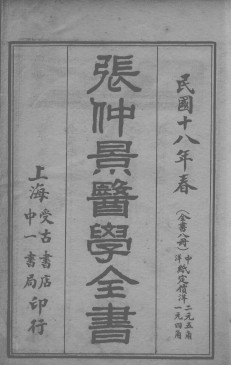 民國十八年春
(全書八冊)中紙定價洋二元五角
洋紙定價洋一元四角
張仲景醫學全書
上海受古書店
中一書局印行